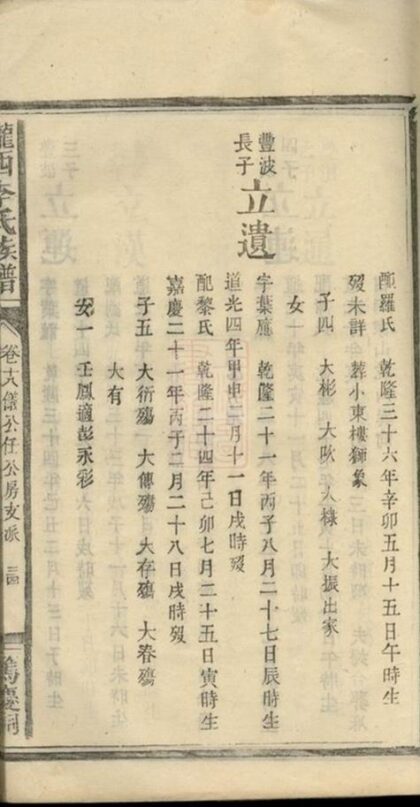 配羅氏 乾隆三十六年辛卯五月十五日午時生
歿未詳 葬小東樓獅象
子四 大彬 大吹 大棣 大振出家
女
豐波長子
立遺
字葉應 乾隆二十一年丙子八月二十七日辰時生
道光四年甲申二月十一日戌時歿
配黎氏 乾隆二十四年己卯七月二十五日寅時生
嘉慶二十一年丙子二月二十八日戌時歿
子五 大衍殤 大傳殤 大存殤 大春殤
大有
女一 壬鳳適彭永彩
隴西李氏族譜
卷十八儀公任公房支派